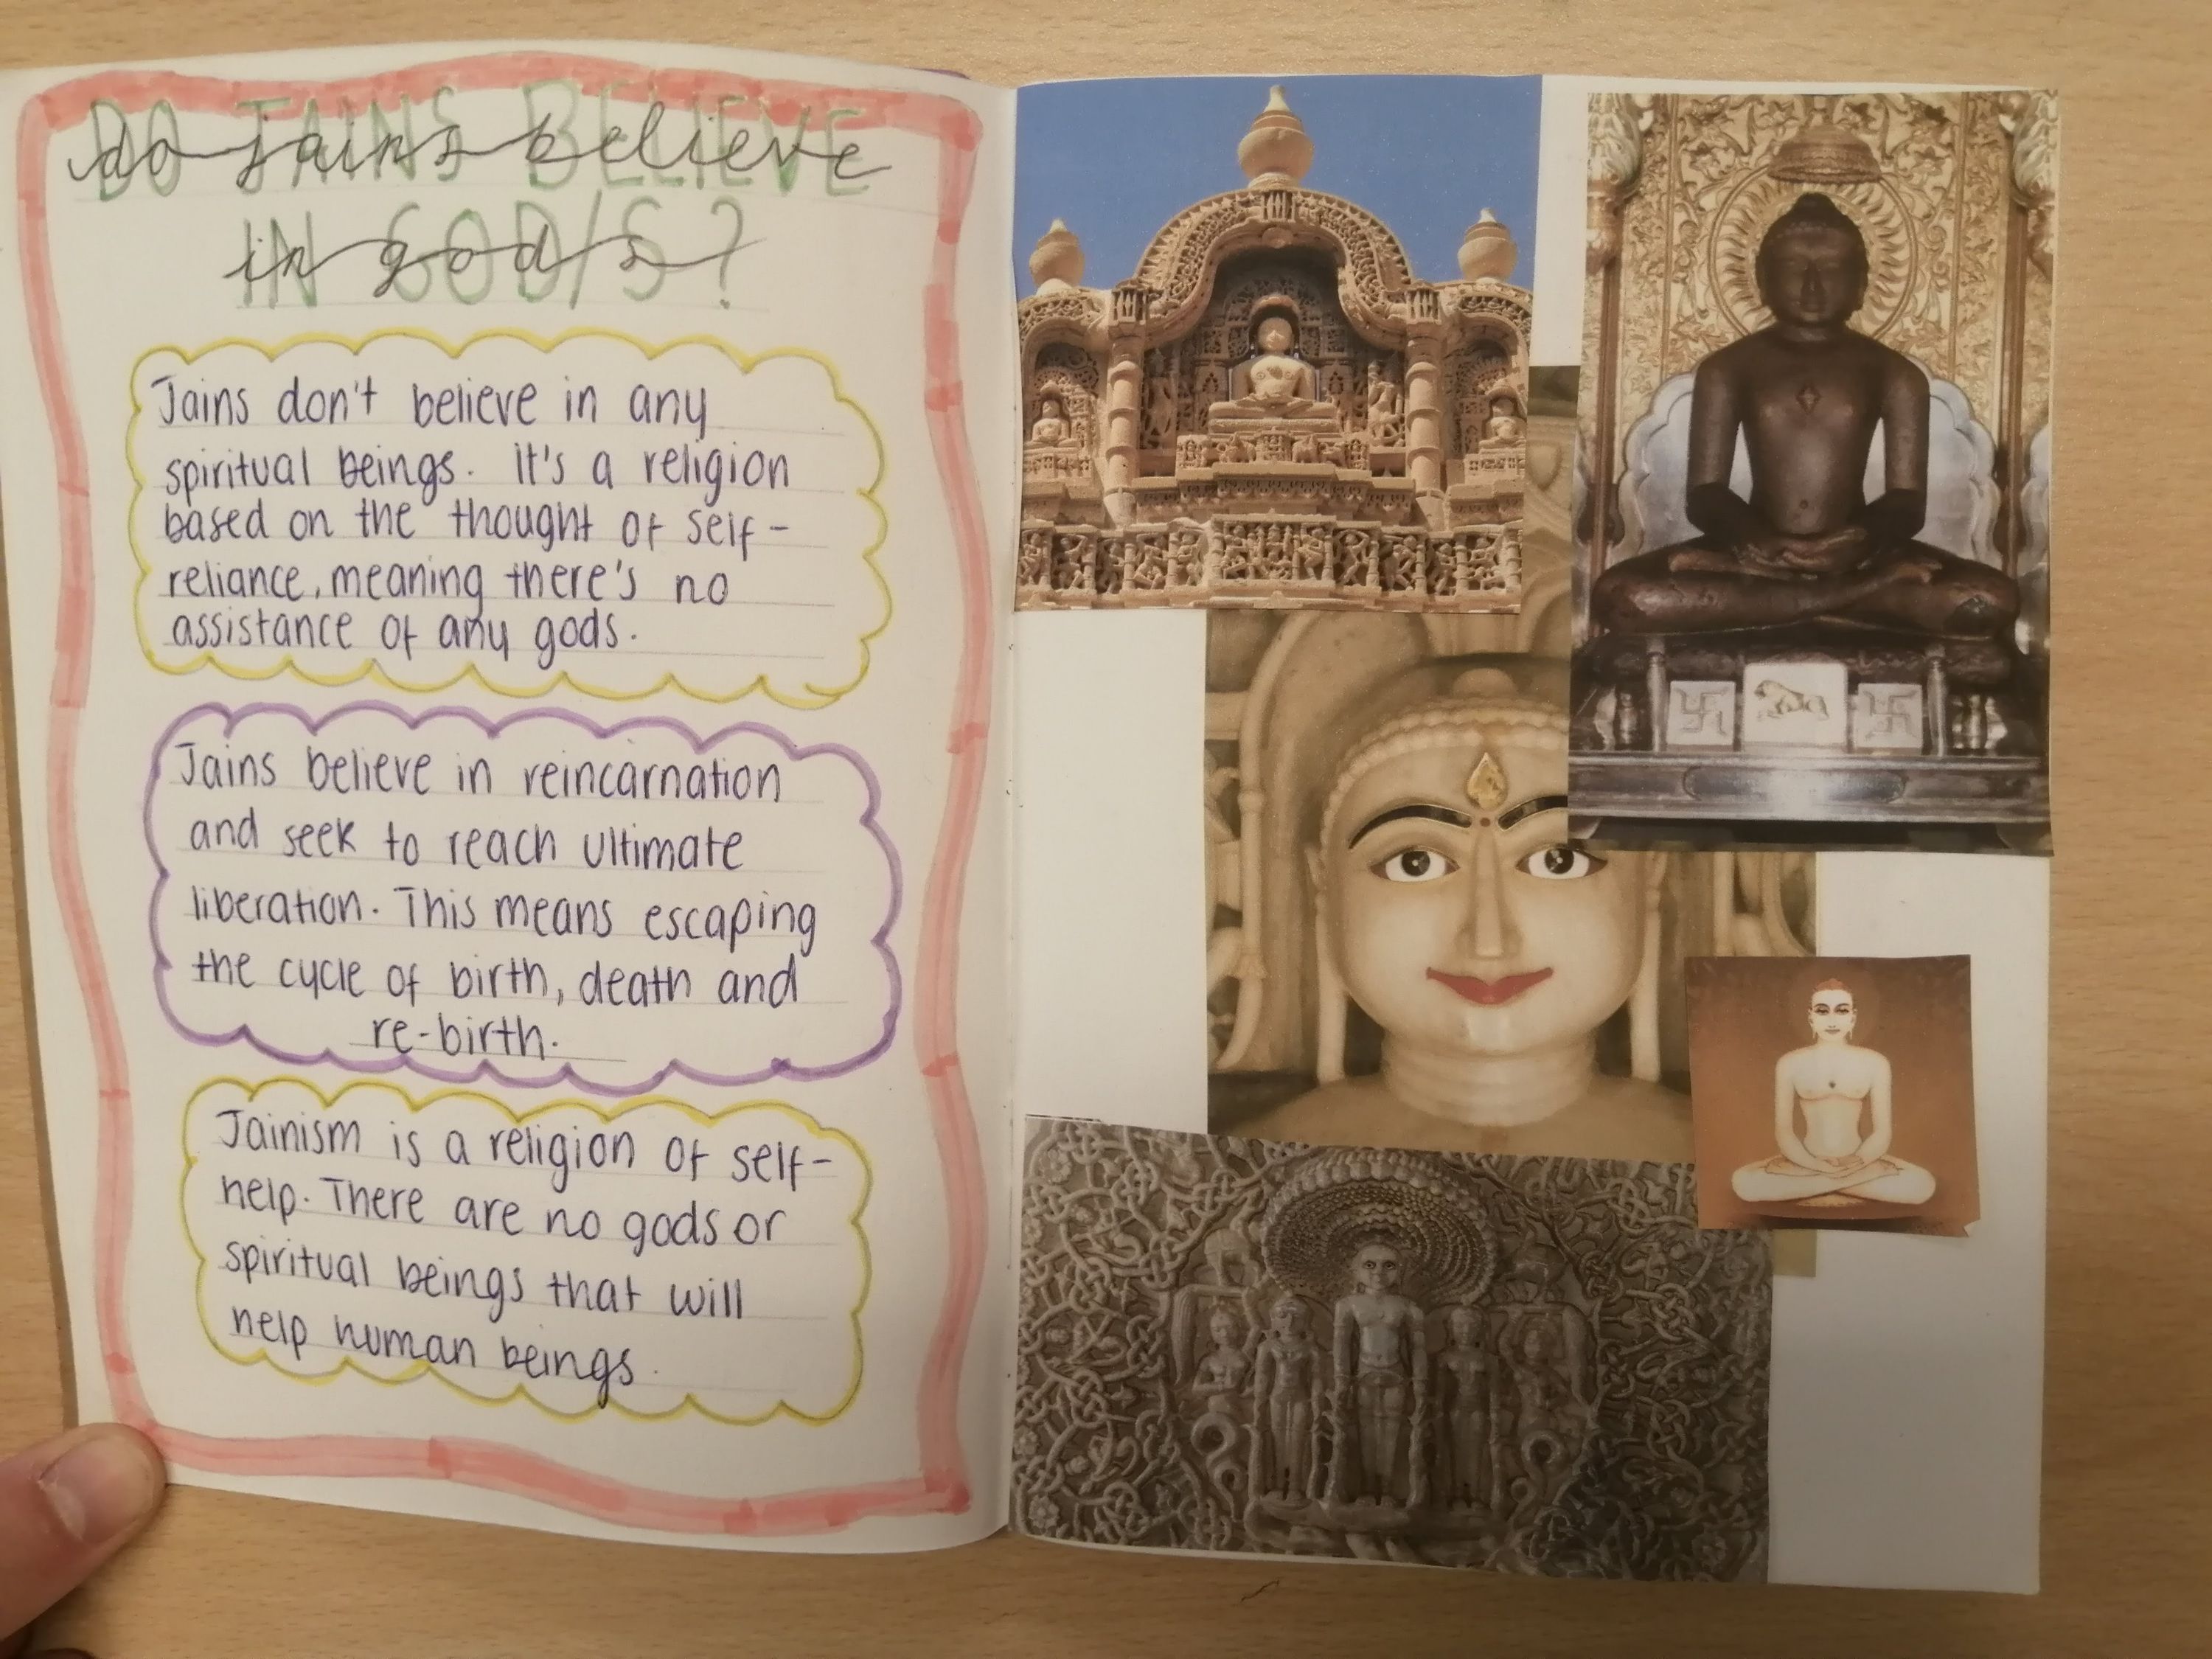 DO JAINS BELIEVE
do jains believe
IN GOD/S?
in god/s
Jains don't believe in any
spiritual beings. It's a religion
based on the thought of self-
reliance, meaning there's no
assistance of any gods.
Jains believe in reincarnation
and seek to reach ultimate
liberation. This means escaping
the cycle of birth, death and
re-birth.
Jainism is a religion of self-
help. There are no gods or
spiritual beings that will
help human beings.